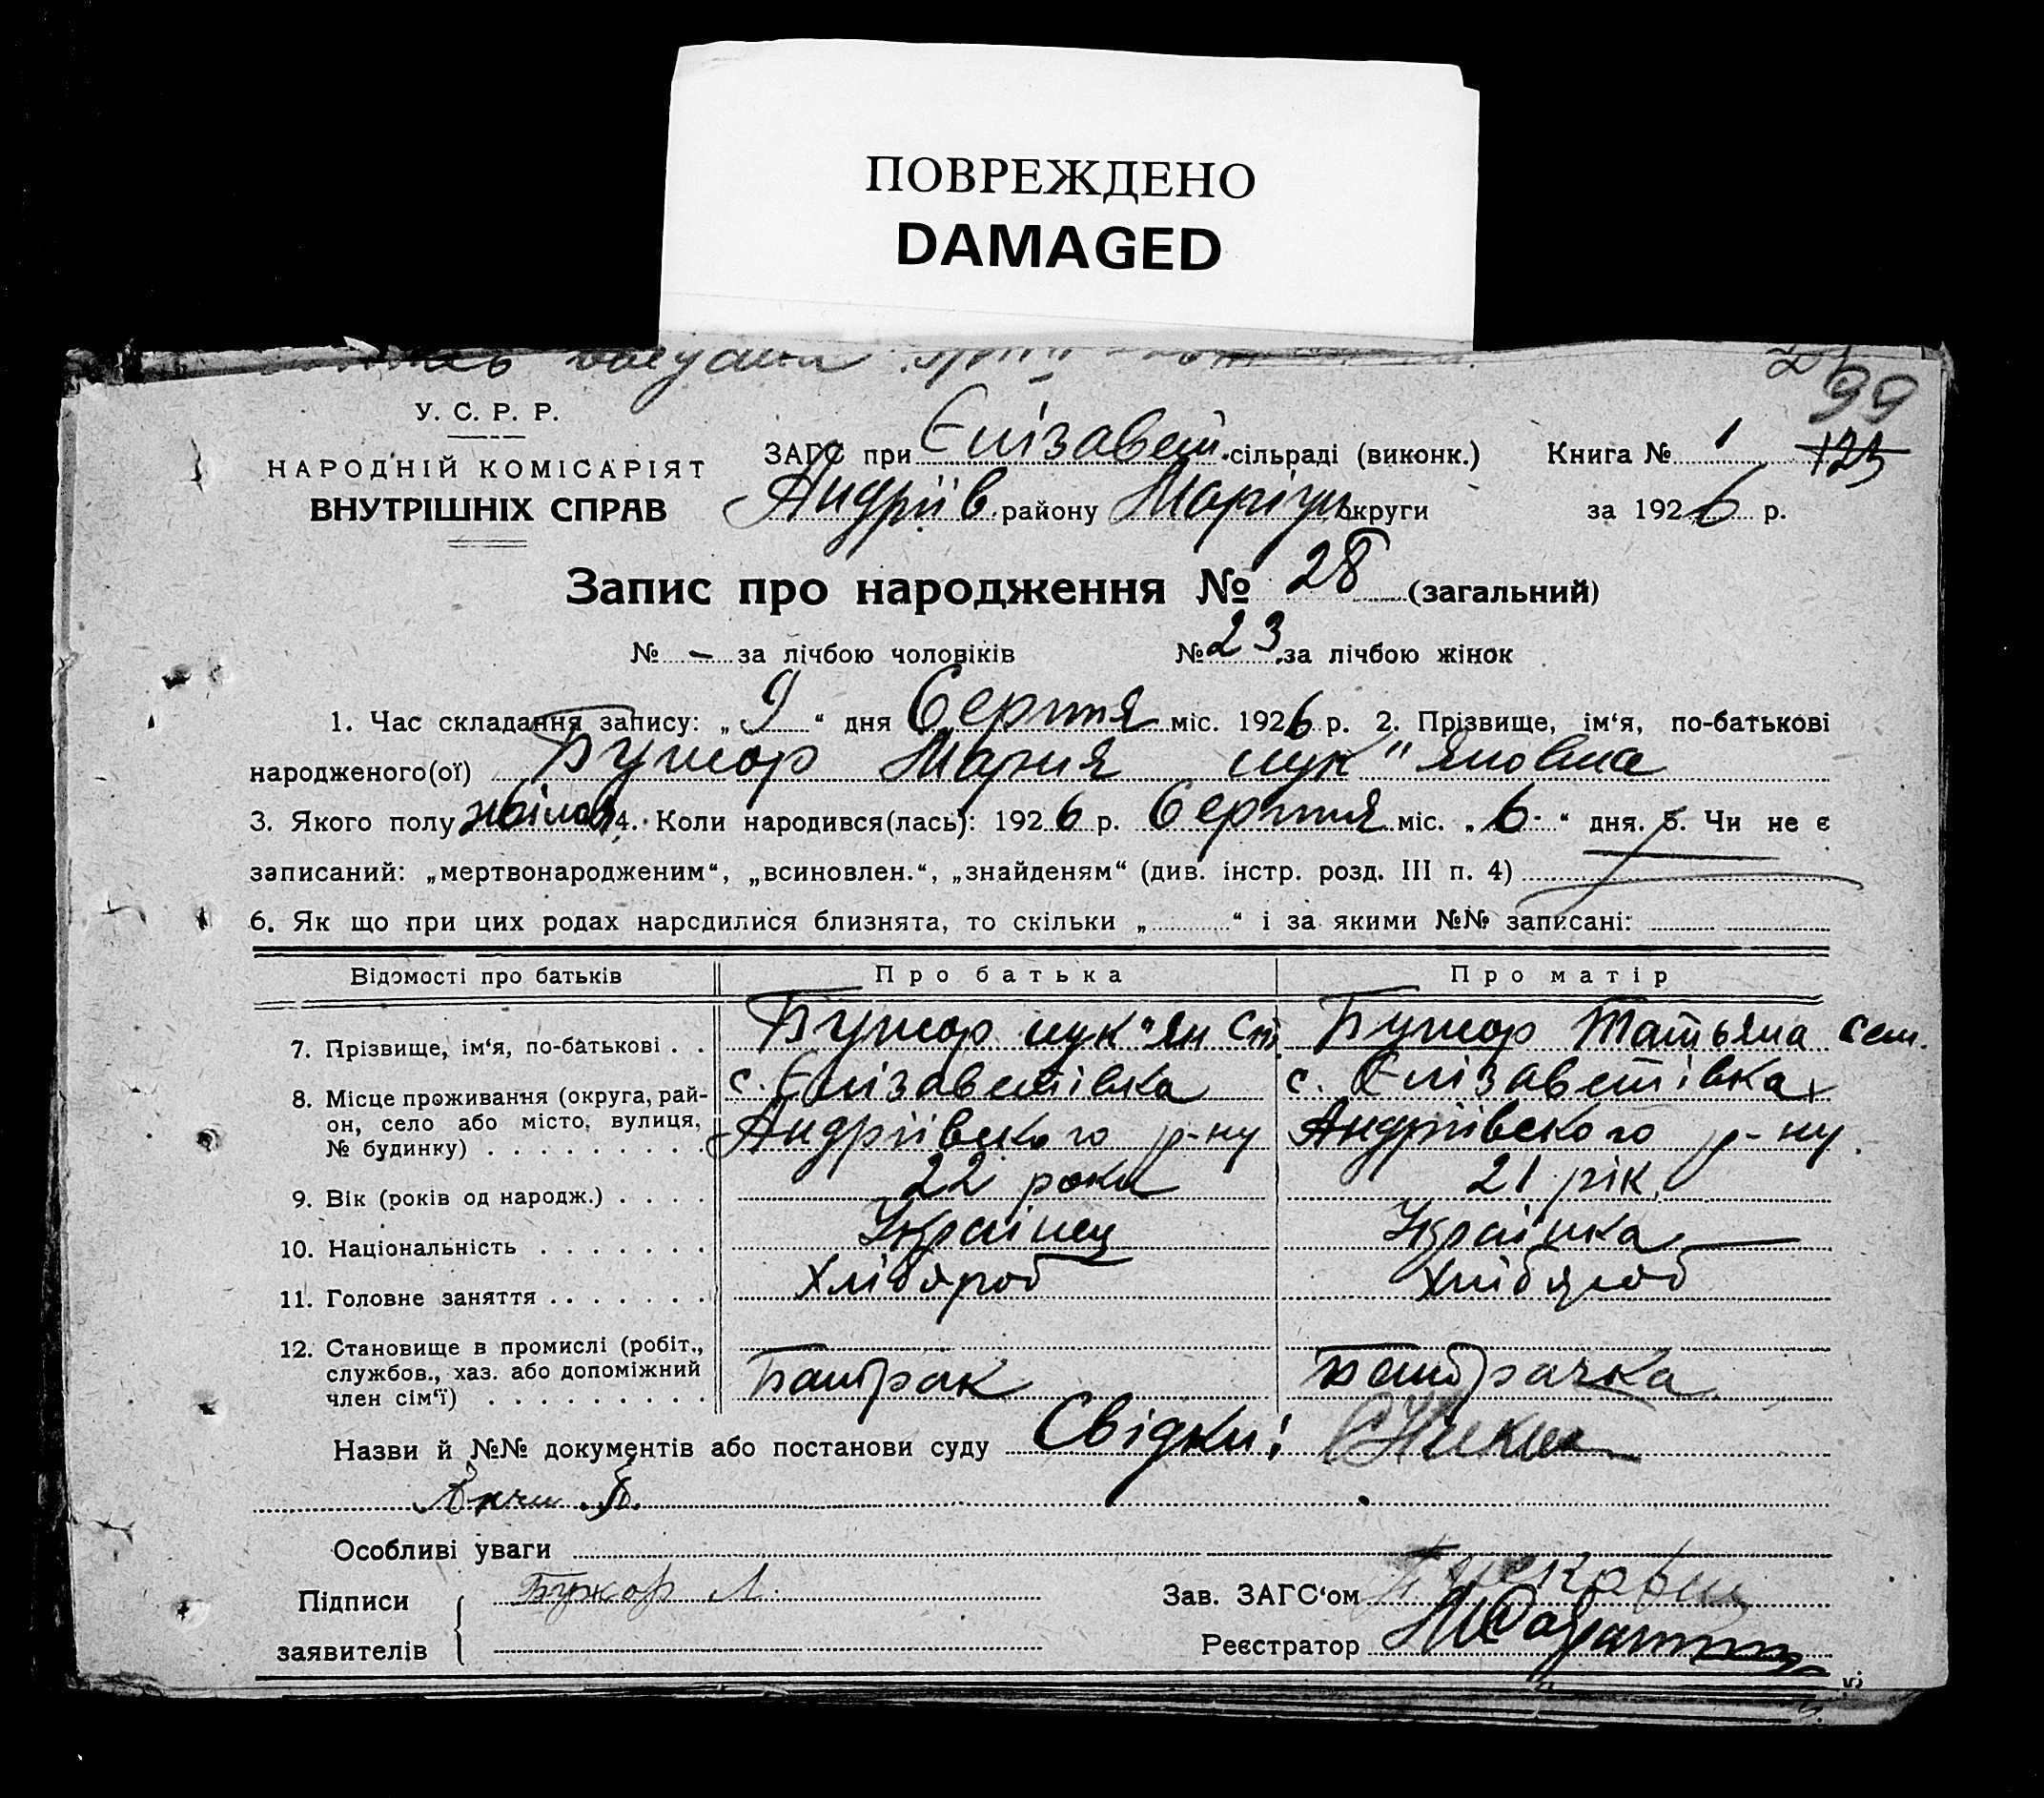 ПОВРЕЖДЕНО
DAMAGED
99
У. С. Р. Р.
НАРОДНІЙ КОМІСАРІЯТ
ВНУТРІШНІХ СПРАВ
ЗАГС при Єлізавет. сільраді (виконк.) Книга № 1 123
Андріїв. району Маріуп округи за 1926 р.
Запис про народження № 28 (загальний)
№ - за лічбою чоловіків № 23 за лічбою жінок
1. Час складання запису: „9“ дня Серпня міс. 1926 р. 2. Прізвище, ім‘я, по-батькові
народженого(ої) Бужор Мария Лук"яновна
3. Якого полу 4. Коли народився(лась): 1926 р. Серпня міс. „6“ дня. 5. Чи не є
записаний: „мертвонародженим“, „всиновлен.“, „знайденям“ (див. інстр. розд. III п. 4)
6. Як що при цих родах народилися близнята, то скільки „ “ і за якими №№ записані:
Відомості про батьків Про батька Про матір
7. Прізвище, ім‘я, по-батькові . . Бужор Лук"ян Ст. Бужор Татьяна Сем.
8. Місце проживання (округа, рай-
он, село або місто, вулиця,
№ будинку) . . . . . . . . . с. Єлізаветівка Андріївского р-ну с. Єлізаветівка, Андріївского р-ну.
9. Вік (років од народж.) . . . . 22 роки 21 рік.
10. Національність . . . . . . . Українец Українка
11. Головне заняття . . . . . . . Хлібороб Хлібороб
12. Становище в промислі (робіт.,
службов., хаз. або допоміжний
член сім‘ї) . . . . . . . . . Батрак Батрачка
Назви й №№ документів або постанови суду Свідки:
Особливі уваги
Підписи Бужор Л. Зав. ЗАГС‘ом
заявителів Реєстратор